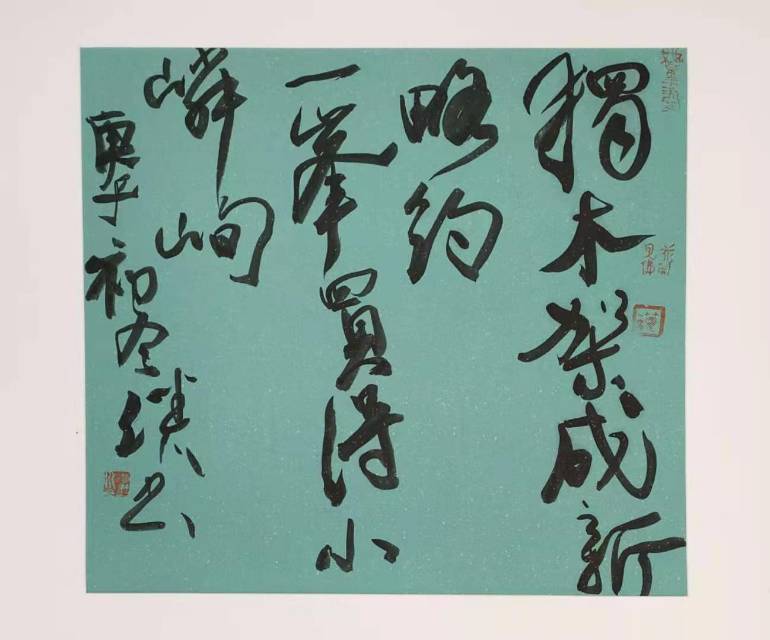 獨木架成新
略約
一峯買得小
嶙峋
庚子初冬績書